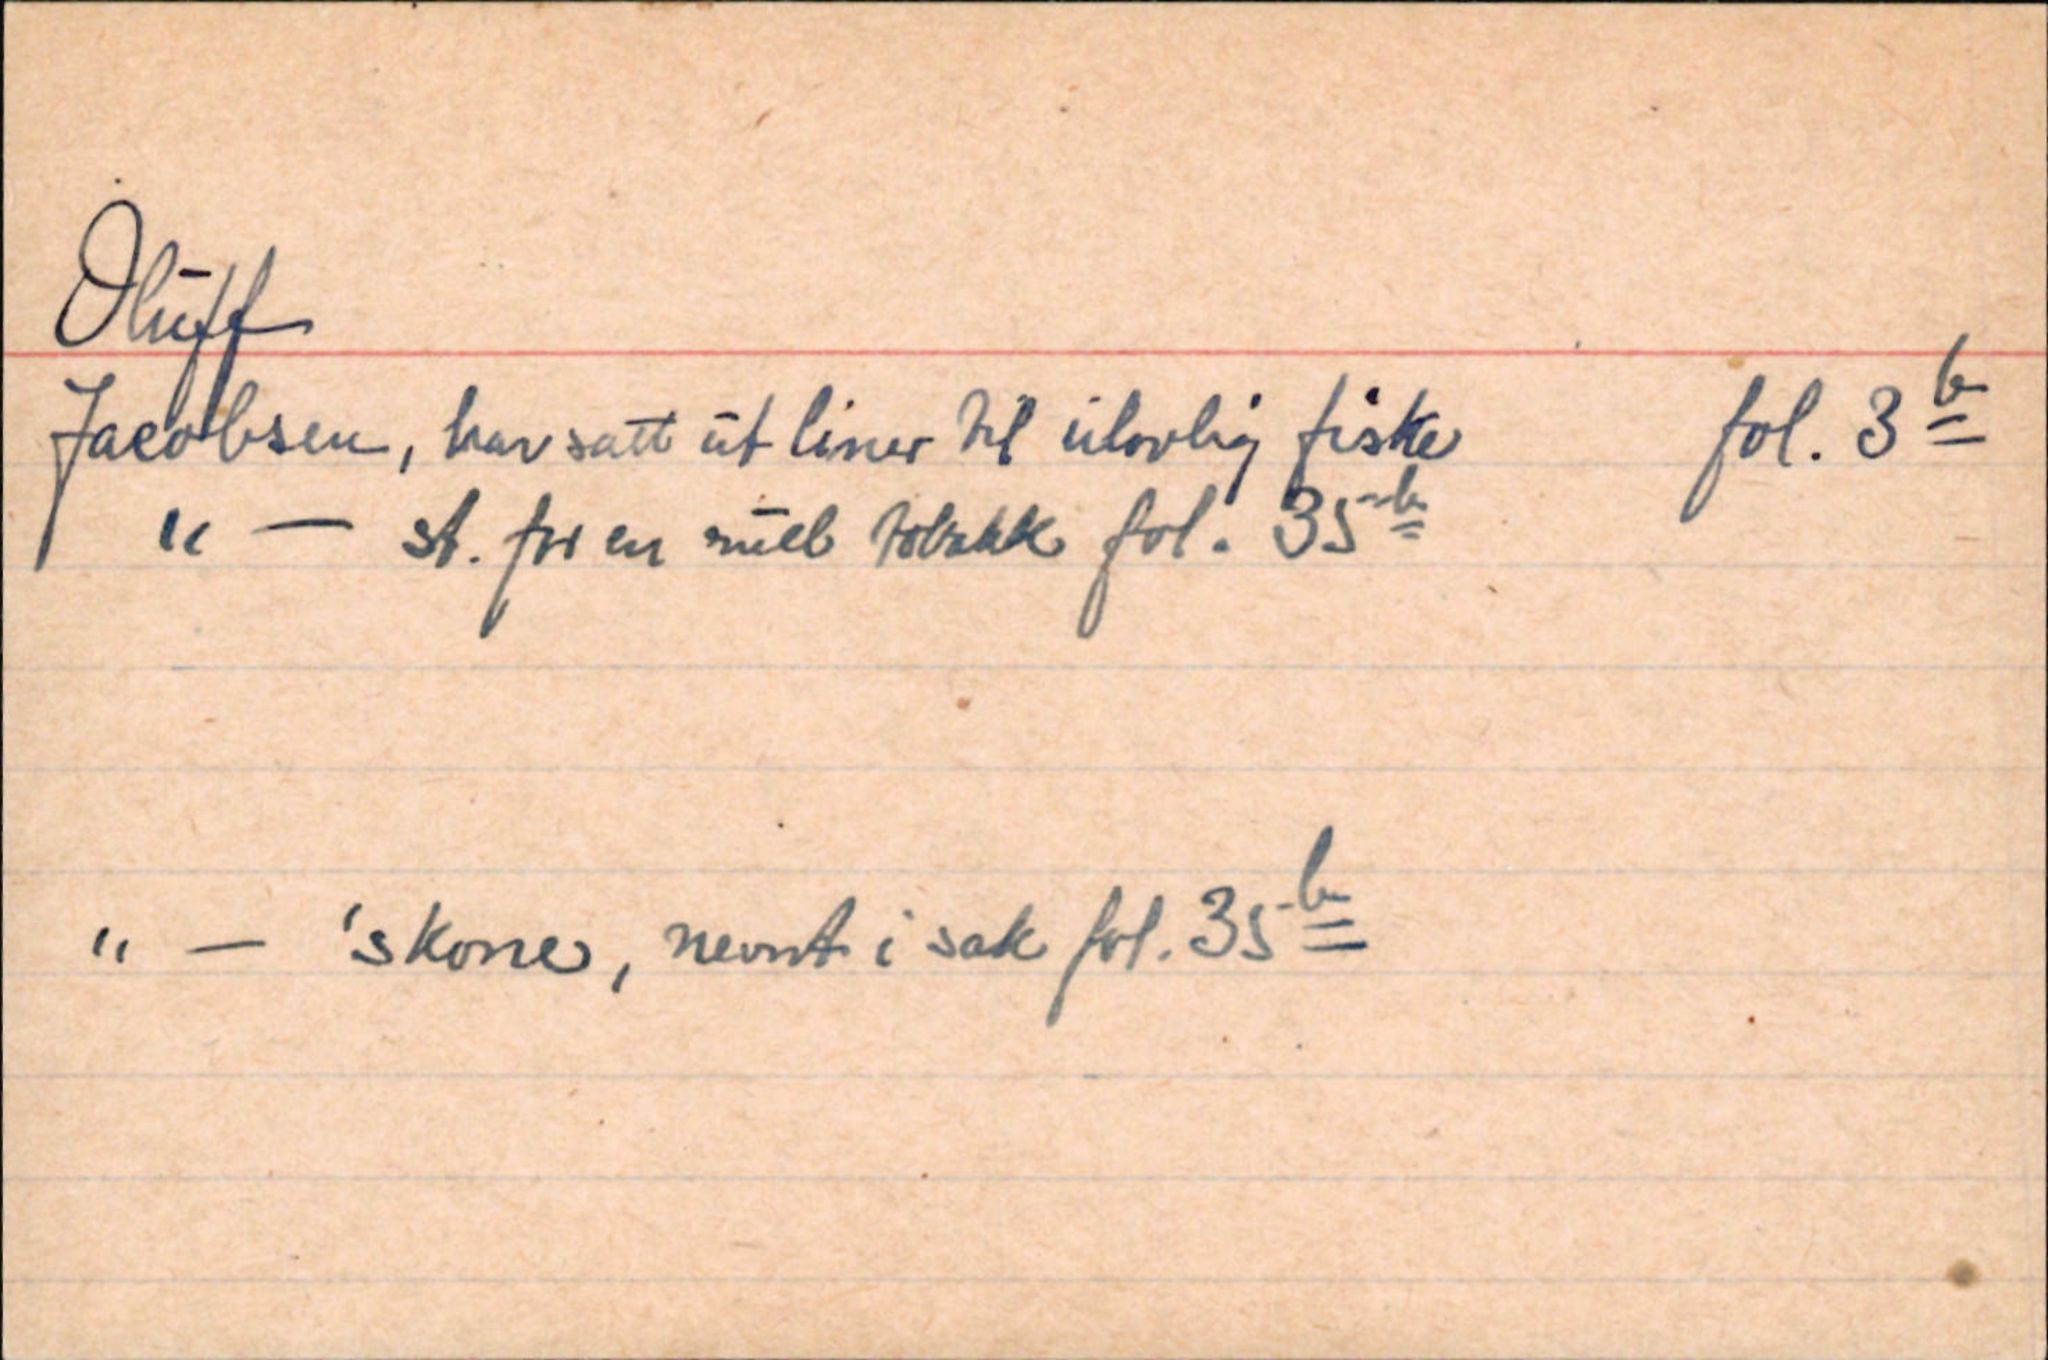 Oluff
Jacobsen, har satt ut liner til ulovlig fiske fol. 3 b
" — st. for en rull tobakk fol. 35 b
" — 'skone, nevnt i sak fol. 35 b